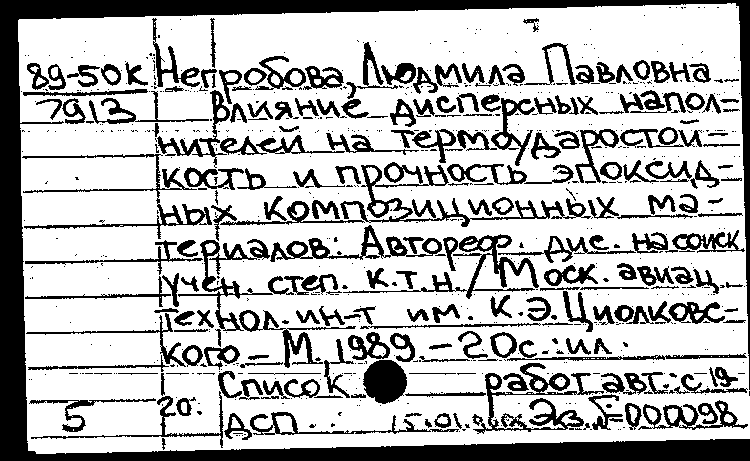 89-50К Непробова, Людмила Павловна
7913 Влияние дисперсных напол-
нителей на термоударостой-
кость и прочность эпоксид-
ных композиционных ма-
териалов: Автореф. дис. на соиск
учен. степ. к.т.н./Моск. авиац
технол. ин-т им. К.Э.Циолковс-
кого.- М., 1989.-20с.:ил.
Список работ авт.:с.19-
20.
5 ДСП. Экз.№000098